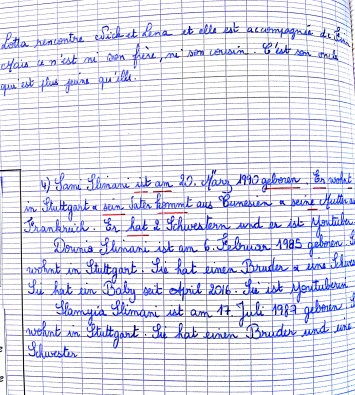 Lotta rencontre Nick et Lena et elle est accompagnée de
Mais ce n'est ni son frère, ni son cousin. C'est son oncle
qui est plus jeune qu'elle.
4) Sami Slimani ist am 23. März 1990 geboren. Er wohnt
in Stuttgart & sein Vater kommt aus Tunesien & seine Mutter
Frankreich. Er hat 2 Schwestern und er ist Youtuber
Dounia Slimani ist am 6. Februar 1985 geboren. S
wohnt in Stuttgart. Sie hat einen Bruder & eine Schwes
Sie hat ein Baby seit April 2016. Sie ist youtuberin
Slamyia Slimani ist am 17. Juli 1987 geboren. S
wohnt in Stuttgart. Sie hat einen Bruder und eine
Schwester